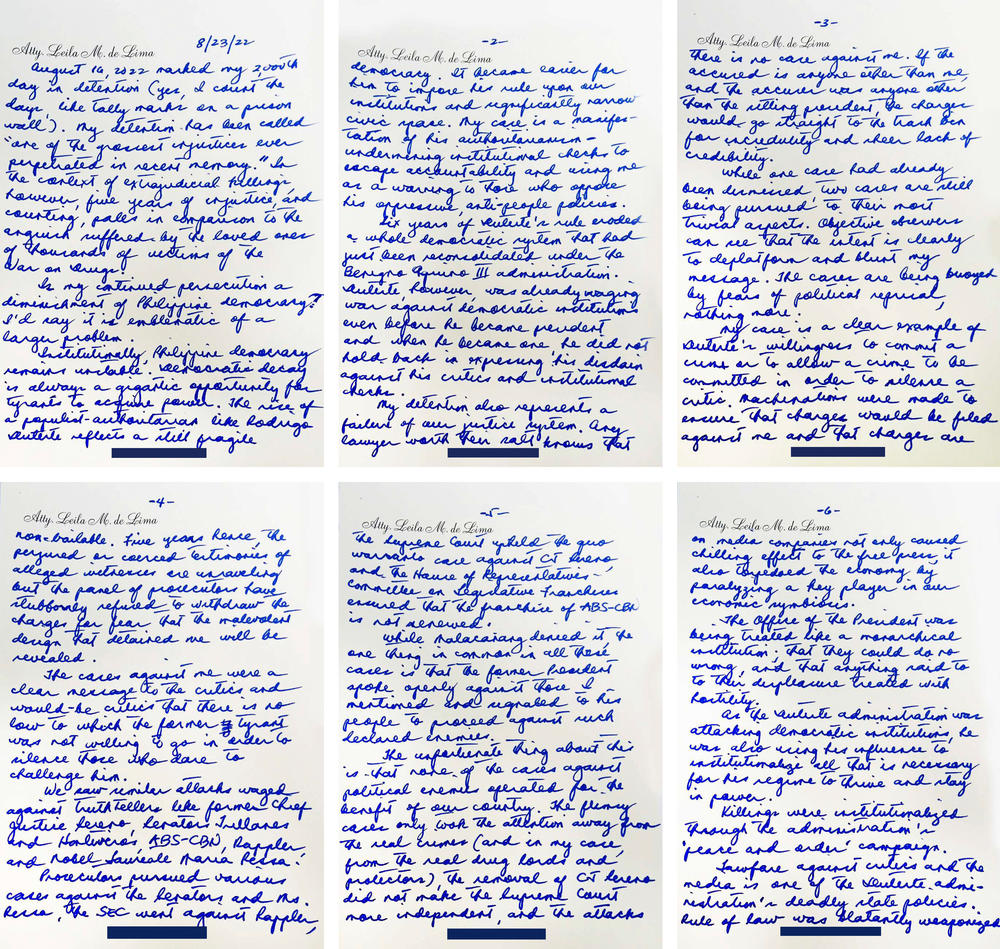 8/23/22
Atty. Leila M. de Lima
August 16, 2022 marked my 2000th
day in detention (yes, I count the
days, like tally marks on a prison
wall). My detention has been called
"one of the grossest injustices ever
perpetrated in recent memory." In
the context of extrajudicial killings,
however, five years of injustice, and
counting, pales in comparison to the
anguish suffered by the loved ones
of thousands of victims of the
War on Drugs.
Is my continued persecution a
diminishment of Philippine democracy?
I'd say it is emblematic of a
larger problem.
Institutionally, Philippine democracy
remains unstable. Democratic decay
is always a gigantic opportunity for
tyrants to acquire power. The rise of
a populist-authoritarian like Rodrigo
Duterte reflects a still fragile
-2-
Atty. Leila M. de Lima
democracy. It became easier for
him to impose his rule upon our
institutions and significantly narrow
civic space. My case is a manifes-
tation of his authoritarianism -
undermining institutional checks to
escape accountability and using me
as a warning to those who oppose
his oppressive, anti-people policies.
Six years of Duterte's rule eroded
a whole democratic system that had
just been reconsolidated under the
Benigno Aquino III administration.
Duterte however was already waging
war against democratic institutions
even before he became president
and when he became one he did not
hold back in expressing his disdain
against his critics and institutional
checks.
My detention also represents a
failure of our justice system. Any
lawyer worth their salt knows that
-3-
Atty. Leila M. de Lima
there is no case against me. If the
accused is anyone other than me,
and the accuser was anyone other
than the sitting president, the charges
would go straight to the trash bin
for incredulity and sheer lack of
credibility.
While one case had already
been dismissed, two cases are still
being pursued to their most
trivial aspects. Objective observers
can see that the intent is clearly
to deplatform and blunt my
message. The cases are being buoyed
by fears of political reprisal,
nothing more.
My case is a clear example of
Duterte's willingness to commit a
crime or to allow a crime to be
committed in order to silence a
critic. Machinations were made to
ensure that charges would be filed
against me and that charges are
-4-
Atty. Leila M. de Lima
non-bailable. Five years hence, the
perjured or coerced testimonies of
alleged witnesses are unraveling
but the panel of prosecutors have
stubbornly refused to withdraw the
charges for fear that the malevolent
design that detained me will be
revealed.
The cases against me were a
clear message to the critics and
would-be critics that there is no
low to which the former tyrant
was not willing to go in order to
silence those who dare to
challenge him.
We saw similar attacks waged
against truthtellers like former Chief
Justice Sereno, Senators Trillanes
and Hontiveros, ABS-CBN, Rappler
and Nobel Laureate Maria Ressa.
Prosecutors pursued various
cases against the Senators and Ms.
Ressa, the SEC went against Rappler,
-5-
Atty. Leila M. de Lima
the Supreme Court upheld the quo
warranto case against CJ Sereno
and the House of Representatives'
Committee on Legislative Franchises
ensured that the franchise of ABS-CBN
is not renewed.
While Malacañang denied it, the
one thing in common in all these
cases is that the former President
spoke openly against those I
mentioned and signaled to his
people to proceed against such
declared enemies.
The unfortunate thing about this
is that none of the cases against
political enemies operated for the
benefit of our country. The flimsy
cases only took the attention away from
the real crimes (and in my case,
from the real drug lords and
protectors), the removal of CJ Sereno
did not make the Supreme Court
more independent, and the attacks
-6-
Atty. Leila M. de Lima
on media companies not only caused
chilling effect to the free press, it
also torpedoed the economy by
paralyzing a key player in our
economic symbiosis.
The Office of the President was
being treated like a monarchical
institution: that they could do no
wrong, and that anything said to
to their displeasure treated with
hostility.
As the Duterte administration was
attacking democratic institutions, he
was also using his influence to
institutionalize all that is necessary
for his regime to thrive and stay
in power.
Killings were institutionalized
through the administration's
'peace and order' campaign.
Lawfare against critics and the
media is one of the Duterte admi-
nistration's deadly state policies.
Rule of law was blatantly weaponized